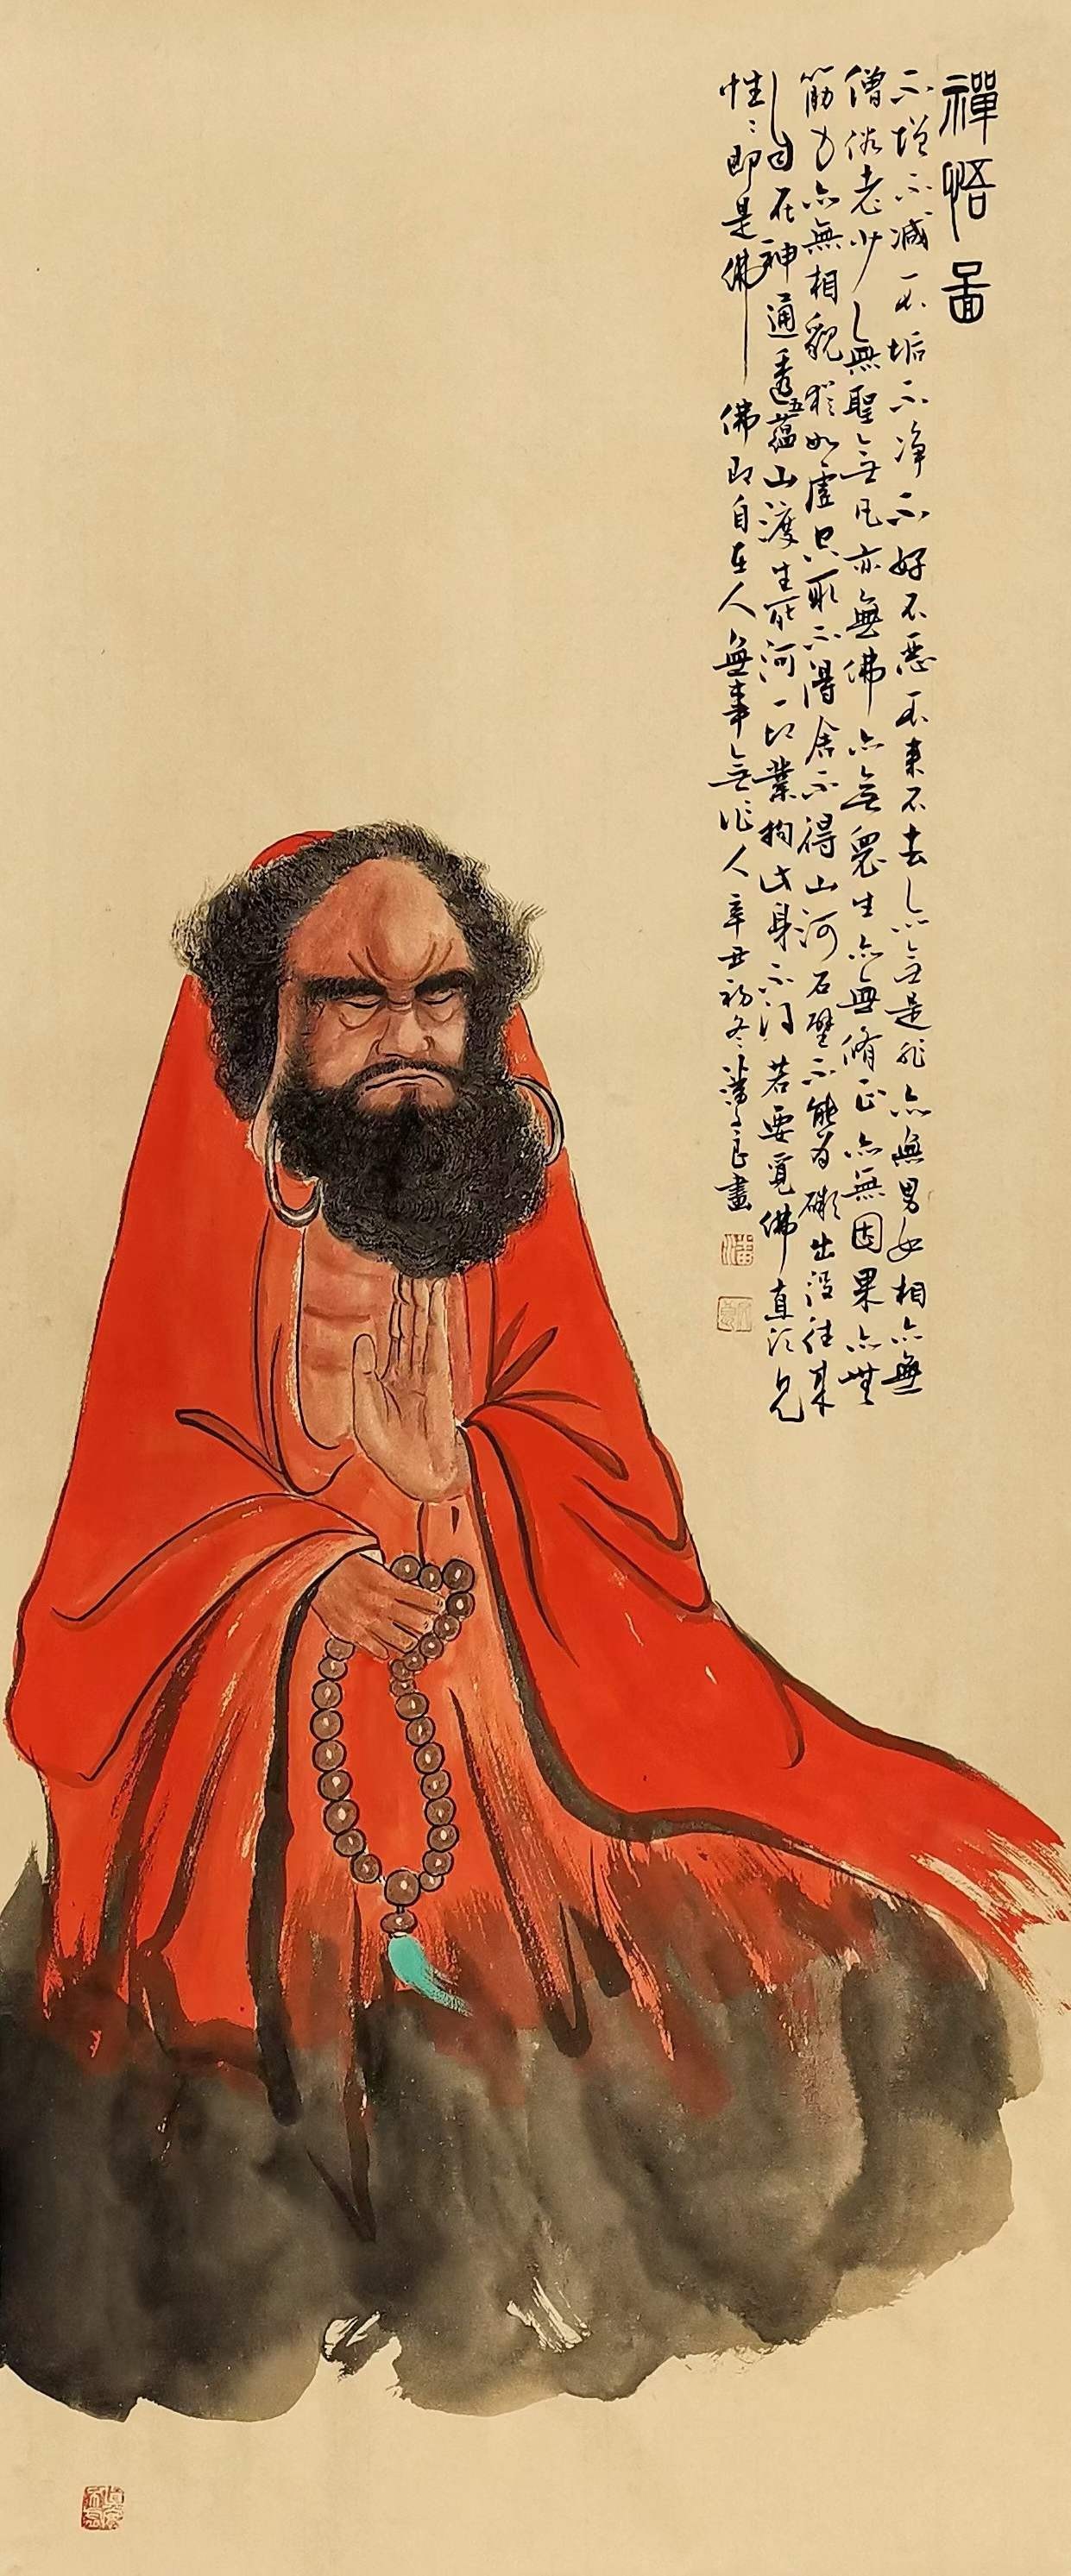 禪悟圖
不增不減不垢不净不好不惡不來不去亦無是非亦無男女相亦無
僧俗老少亦無聖無凡亦無佛亦無眾生亦無脩证亦無因果亦無
筋力亦無相貌犹如虛空取不得舍不得山河石壁不能为礙出没往来
自在神通透五蕴山渡生死河一切業拘此身不得若要覓佛直须見
性性即是佛佛即自在人無事無作人辛丑初冬潘良畫